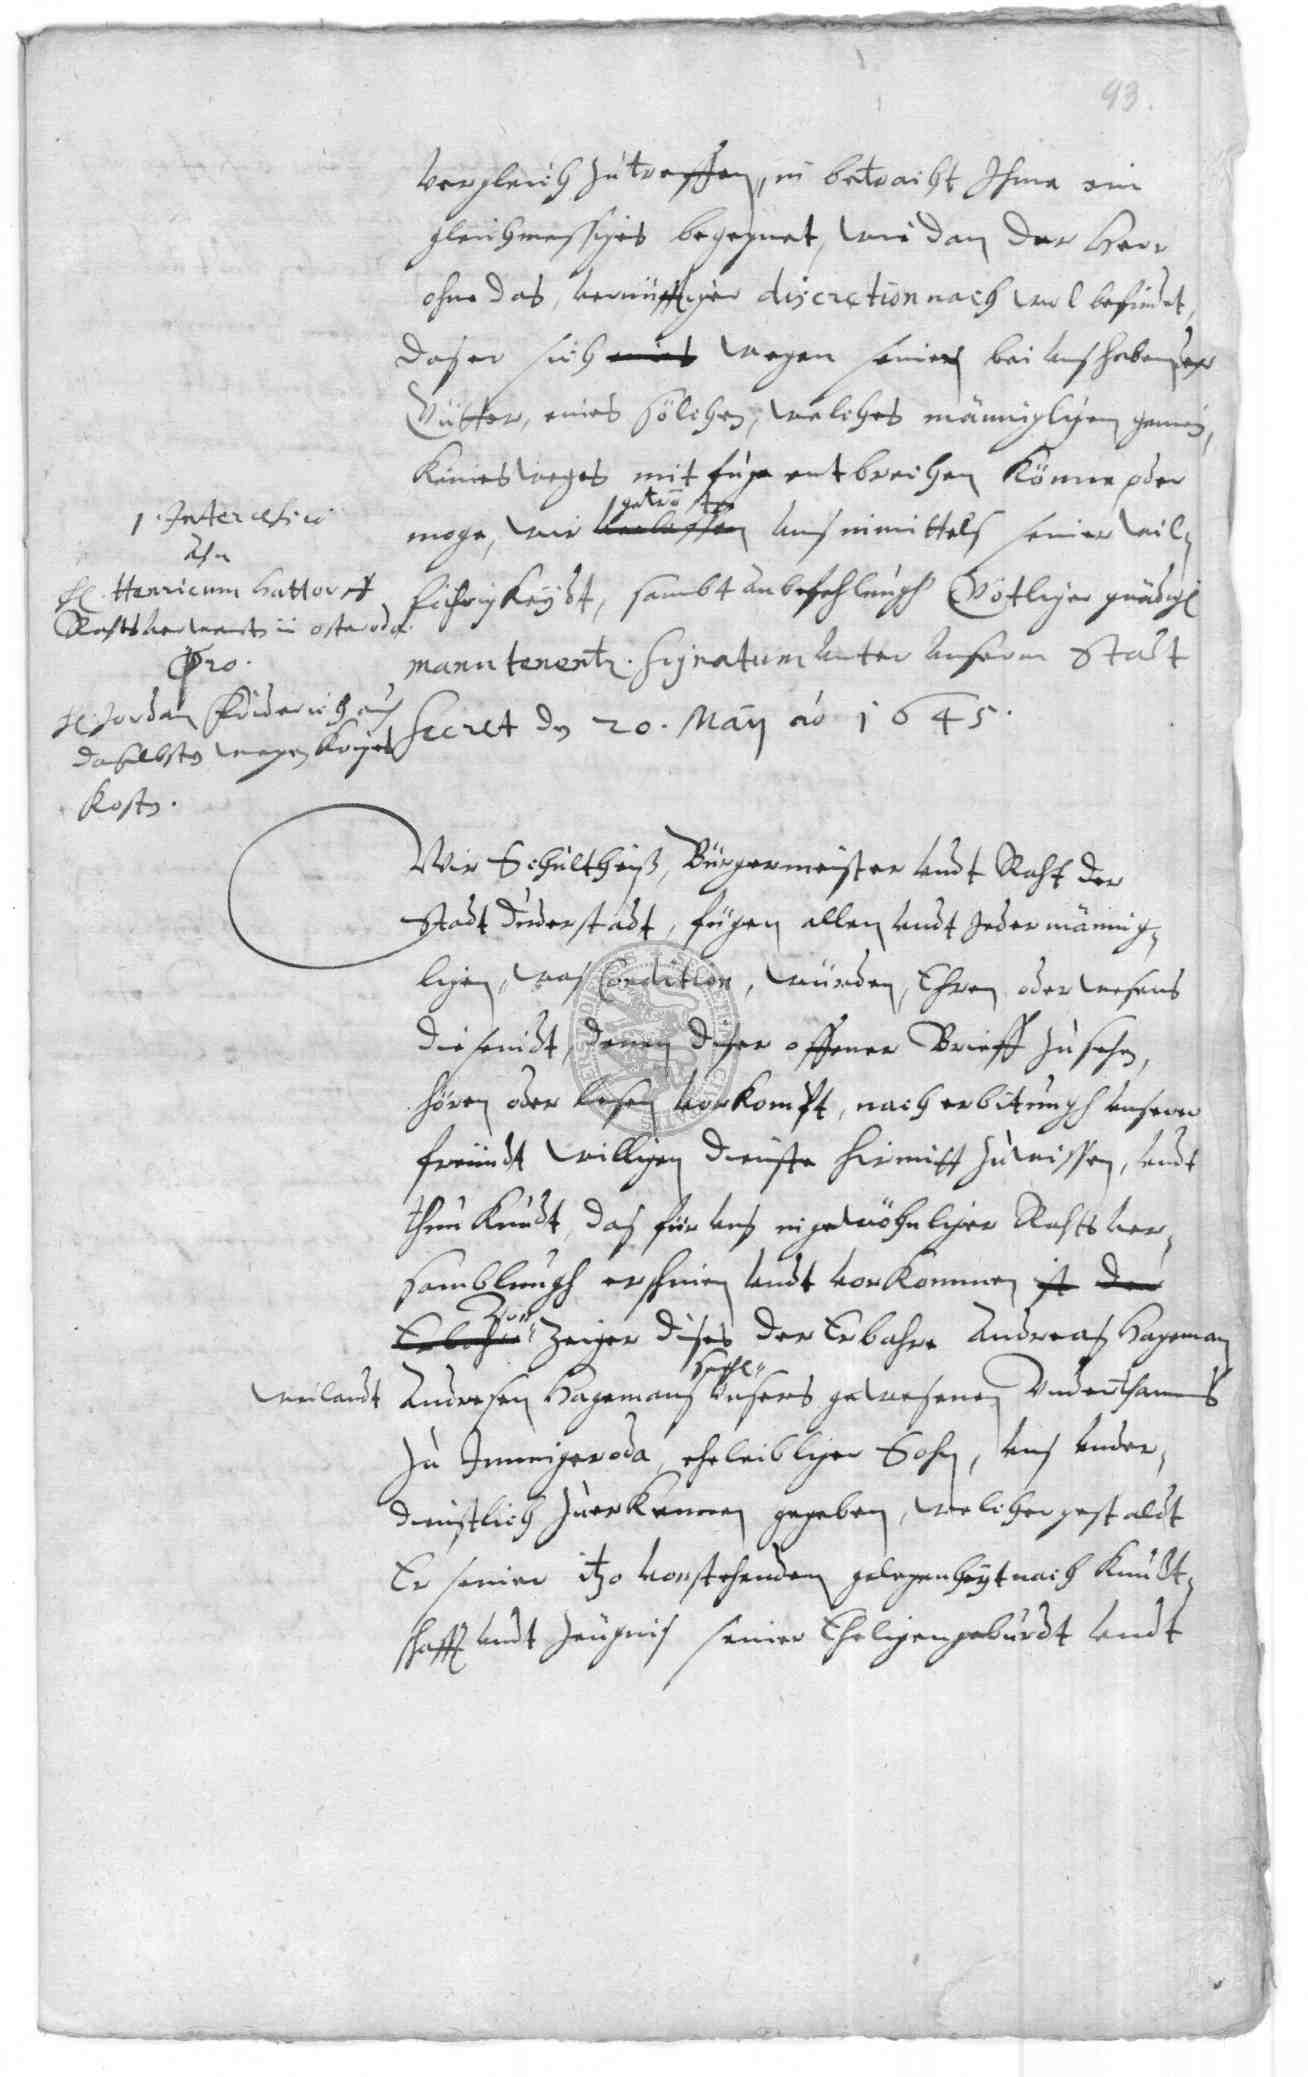 93.
Vergleich zu treffen, in betracht Ihme ein
gleichmessiges begegnet, wie dan der Herr
ohne das, vernünfftiger discretion nach wol befindet,
daß er sich eines wegen seiner bei uns habender
Gütter, eines sölchen, welches männigligen gemein,
keines weges mit fuge entbrechen könne oder
getrösten
moge, wir verlassen uns inmittels seiner wil„
fährigkeydt, sambt anbefehlungh Götliger gnädigl
manutenentz. Signatum unter unserm Stadt
Secret den 20. Maÿ ao 1645.
1. Intercessio
ahn
H. Henricum Hattorff
Rahtsverwante in Osteroda
Pro.
H. Jordan Friderich auch
daselbsten wegen kriges
kosten.
Wir Schültheiß, Bürgermeister undt Raht der
Stadt Duderstadt, fügen allen undt Jedermännig„
ligen, was Condition, würden, Ehren oder wesens
die seindt, denen diser offener Brieff zu sehen,
hören oder lesen vorkompt, nach erbitungh unserer
freundt willigen dienste hiemitt zu wissen, undt
thun kundt, das für uns in gewöhnliger Rahts ver„
samblungh erschinen undt vorkommen ist der
Erbahre Zeiger dises der Erbahre Andreas Hageman
weilandt Andresen Hagemans Sehl: unsers gewesenen Underthanens
zu Immigeroda, eheleibliger Sohn, uns under„
dienstlich zuerkennen gegeben, welcher gestaldt
Er seiner itzo vorstehenden gelegenheÿt nach kundt„
schafft undt zeugnis seiner Eheligen geburdt undt